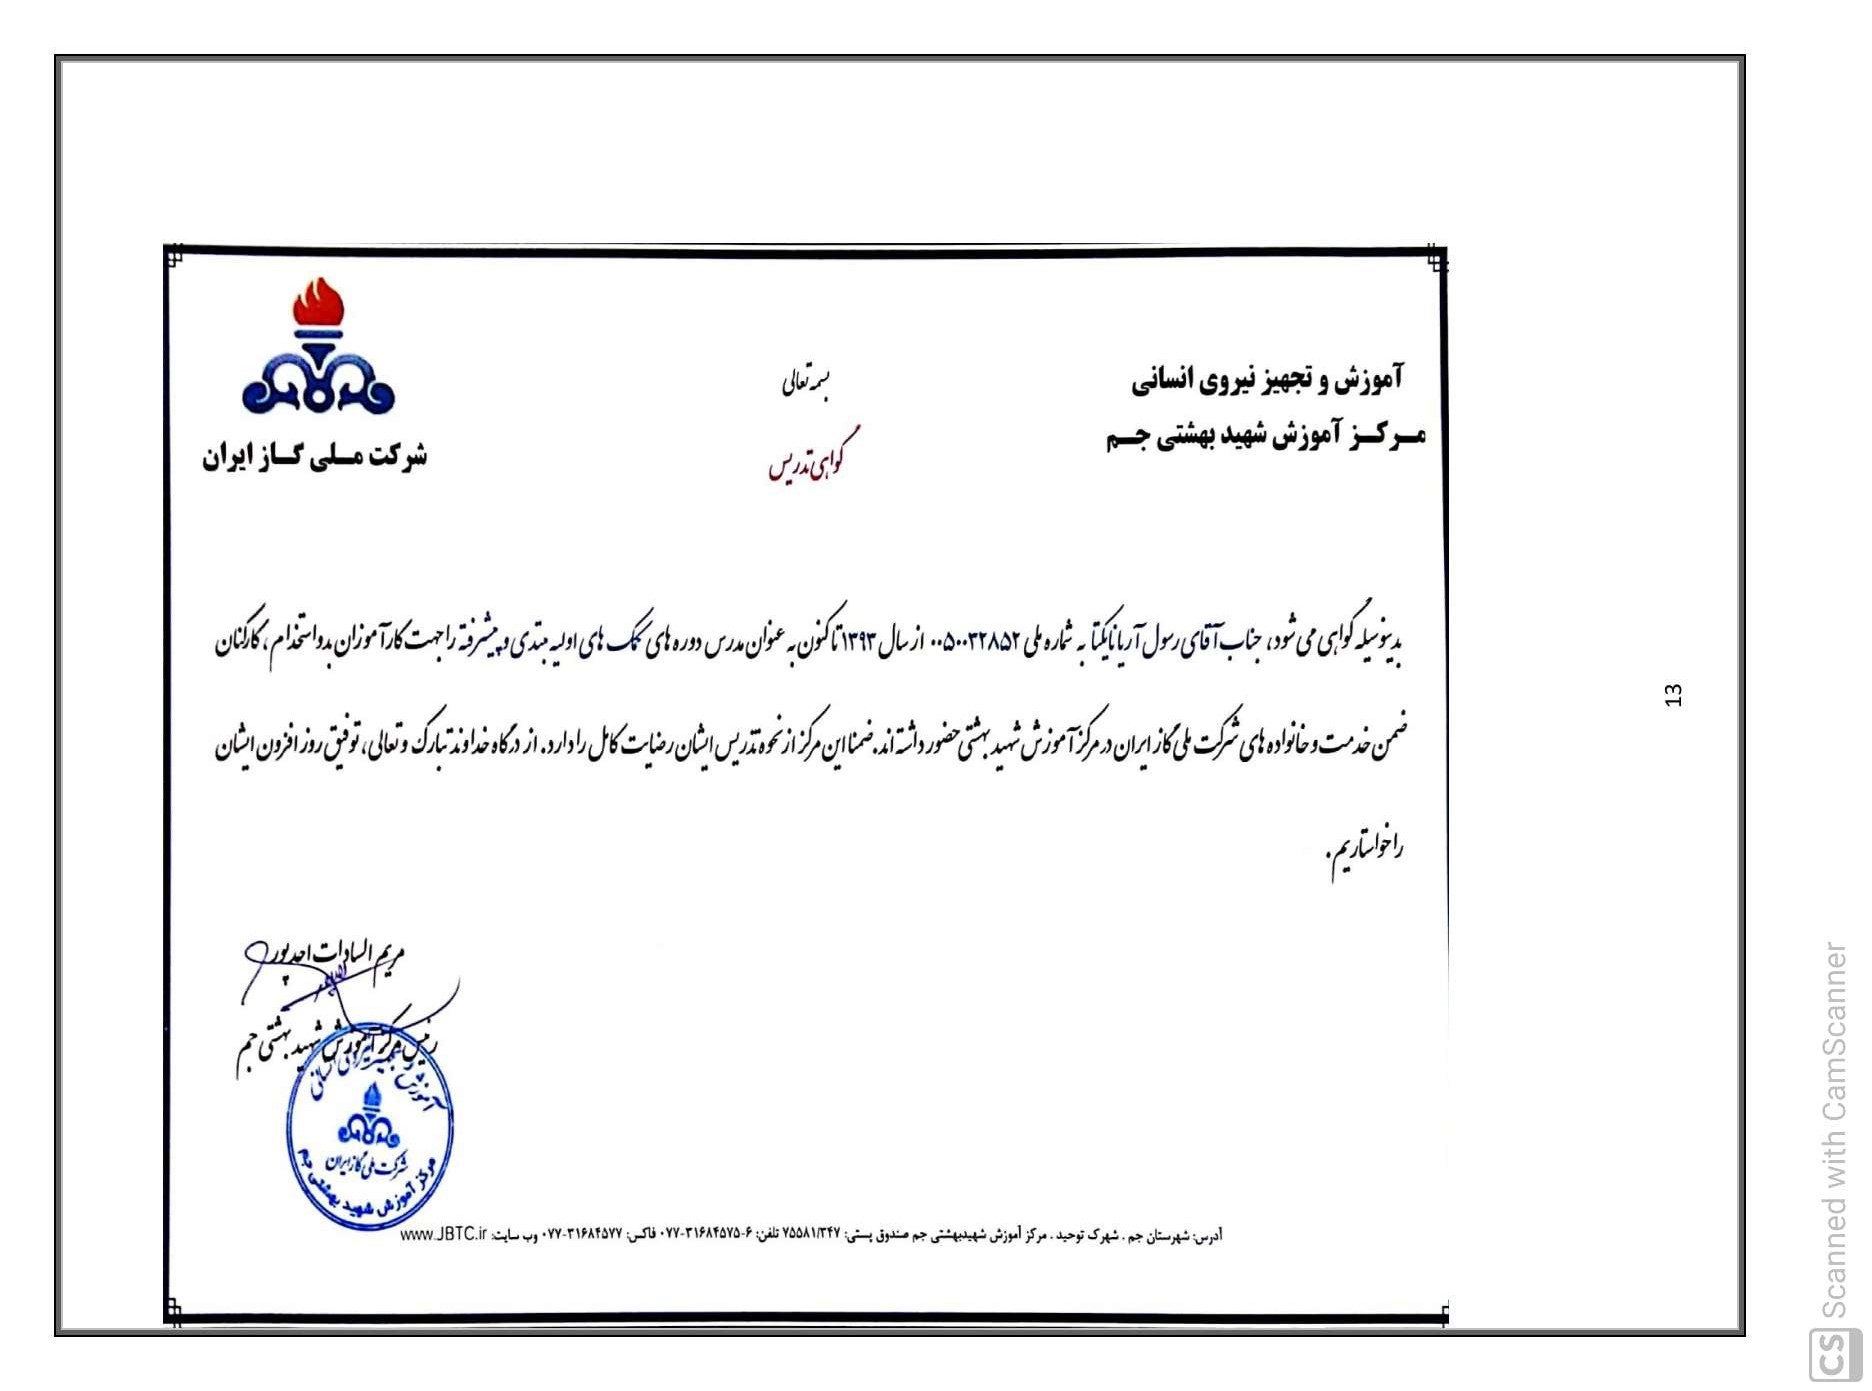 آموزش و تجهیز نیروی انسانی
مـرکـز آموزش شهید بهشتی جـم
بسمه تعالی
گواهی تدریس
شرکت مـلی گـاز ایران
بدینوسیله گواهی می شود، جناب آقای رسول آریانایکتا به شماره ملی ۰۰۵۰۰۳۲۸۵۲ از سال ۱۳۹۳ تاکنون به عنوان مدرس دوره های کمک های اولیه مبتدی و پیشرفته را جهت کارآموزان بدو استخدام ، کارکنان
ضمن خدمت و خانواده های شرکت ملی گاز ایران در مرکز آموزش شهید بهشتی حضور داشته اند. ضمنا این مرکز از نحوه تدریس ایشان رضایت کامل را دارد. از درگاه خداوند تبارک و تعالی، توفیق روز افزون ایشان
را خواستاریم.
مریم السادات احدپور
رئیس مرکز آموزش شهید بهشتی جم
آموزش و تجهیز نیروی انسانی
شرکت ملی گاز ایران
مرکز آموزش شهید بهشتی جم
آدرس: شهرستان جم . شهرک توحید . مرکز آموزش شهیدبهشتی جم صندوق پستی: ۷۵۵۸۱/۳۴۷ تلفن: ۶-۰۷۷-۳۱۶۸۴۵۷۵ فاکس: ۰۷۷-۳۱۶۸۴۵۷۷ وب سایت: www.JBTC.ir
13
CS Scanned with CamScanner